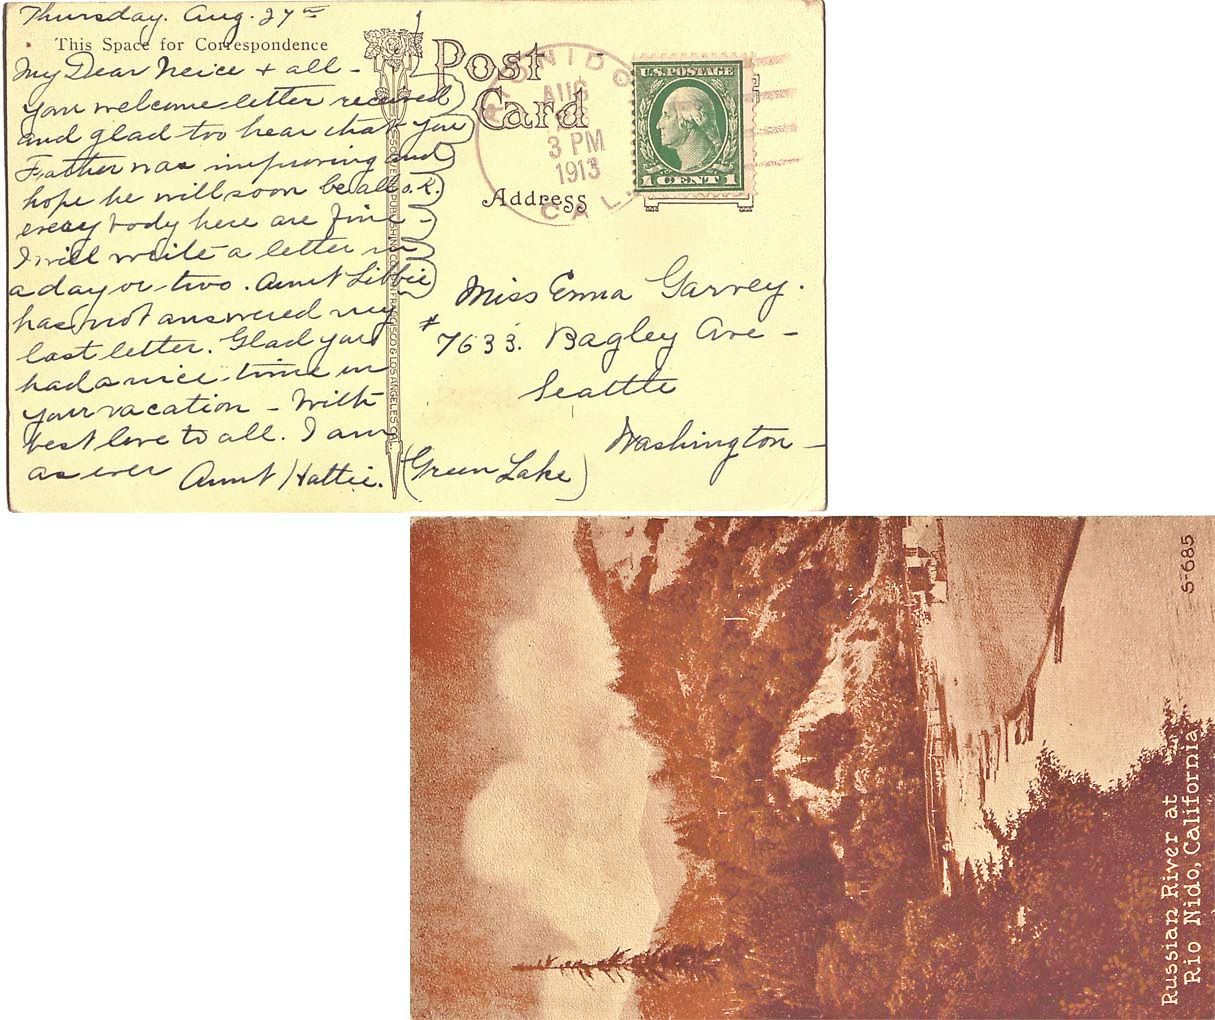 Thursday. Aug. 27th
This Space for Correspondence
My Dear Neice + all -
your welcome letter received
and glad too hear that you
Father was improving and
hope he will soon be all o.k.
every body here are fine -
I will write a letter in
a day or two. Aunt Libbie
has not answered my
last letter. Glad you
had a nice time in
your vacation - With
best love to all. I am
as ever Aunt Hattie.
Post
Card
RIONIDO
AUG
3 PM
1913
CAL.
U.S. POSTAGE
1 CENT 1
Address
Miss Erma Garvey.
# 7633. Bagley Ave -
Seattle
Washington -
(Green Lake)
PUBLISHING CO. SAN FRANCISCO & LOS ANGELES CAL.
S-685
Russian River at
Rio Nido, California